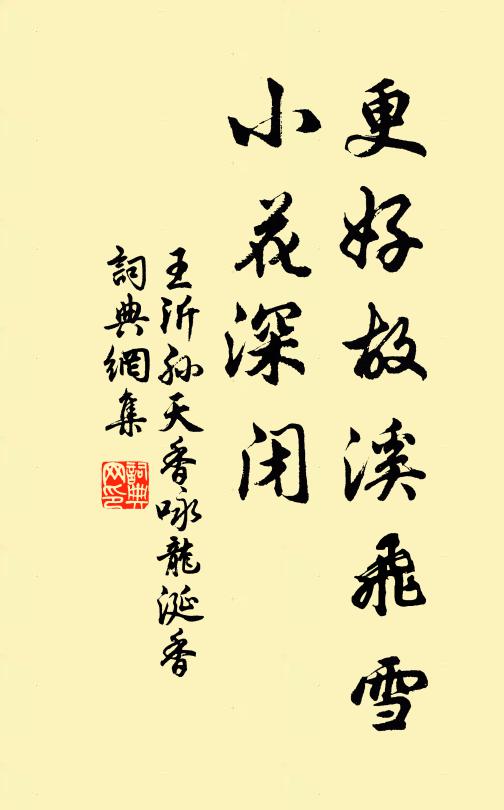 更好故溪飛雪
小花深闭
王沂孙天香咏龍涎香
詞典網集
詞典
网印